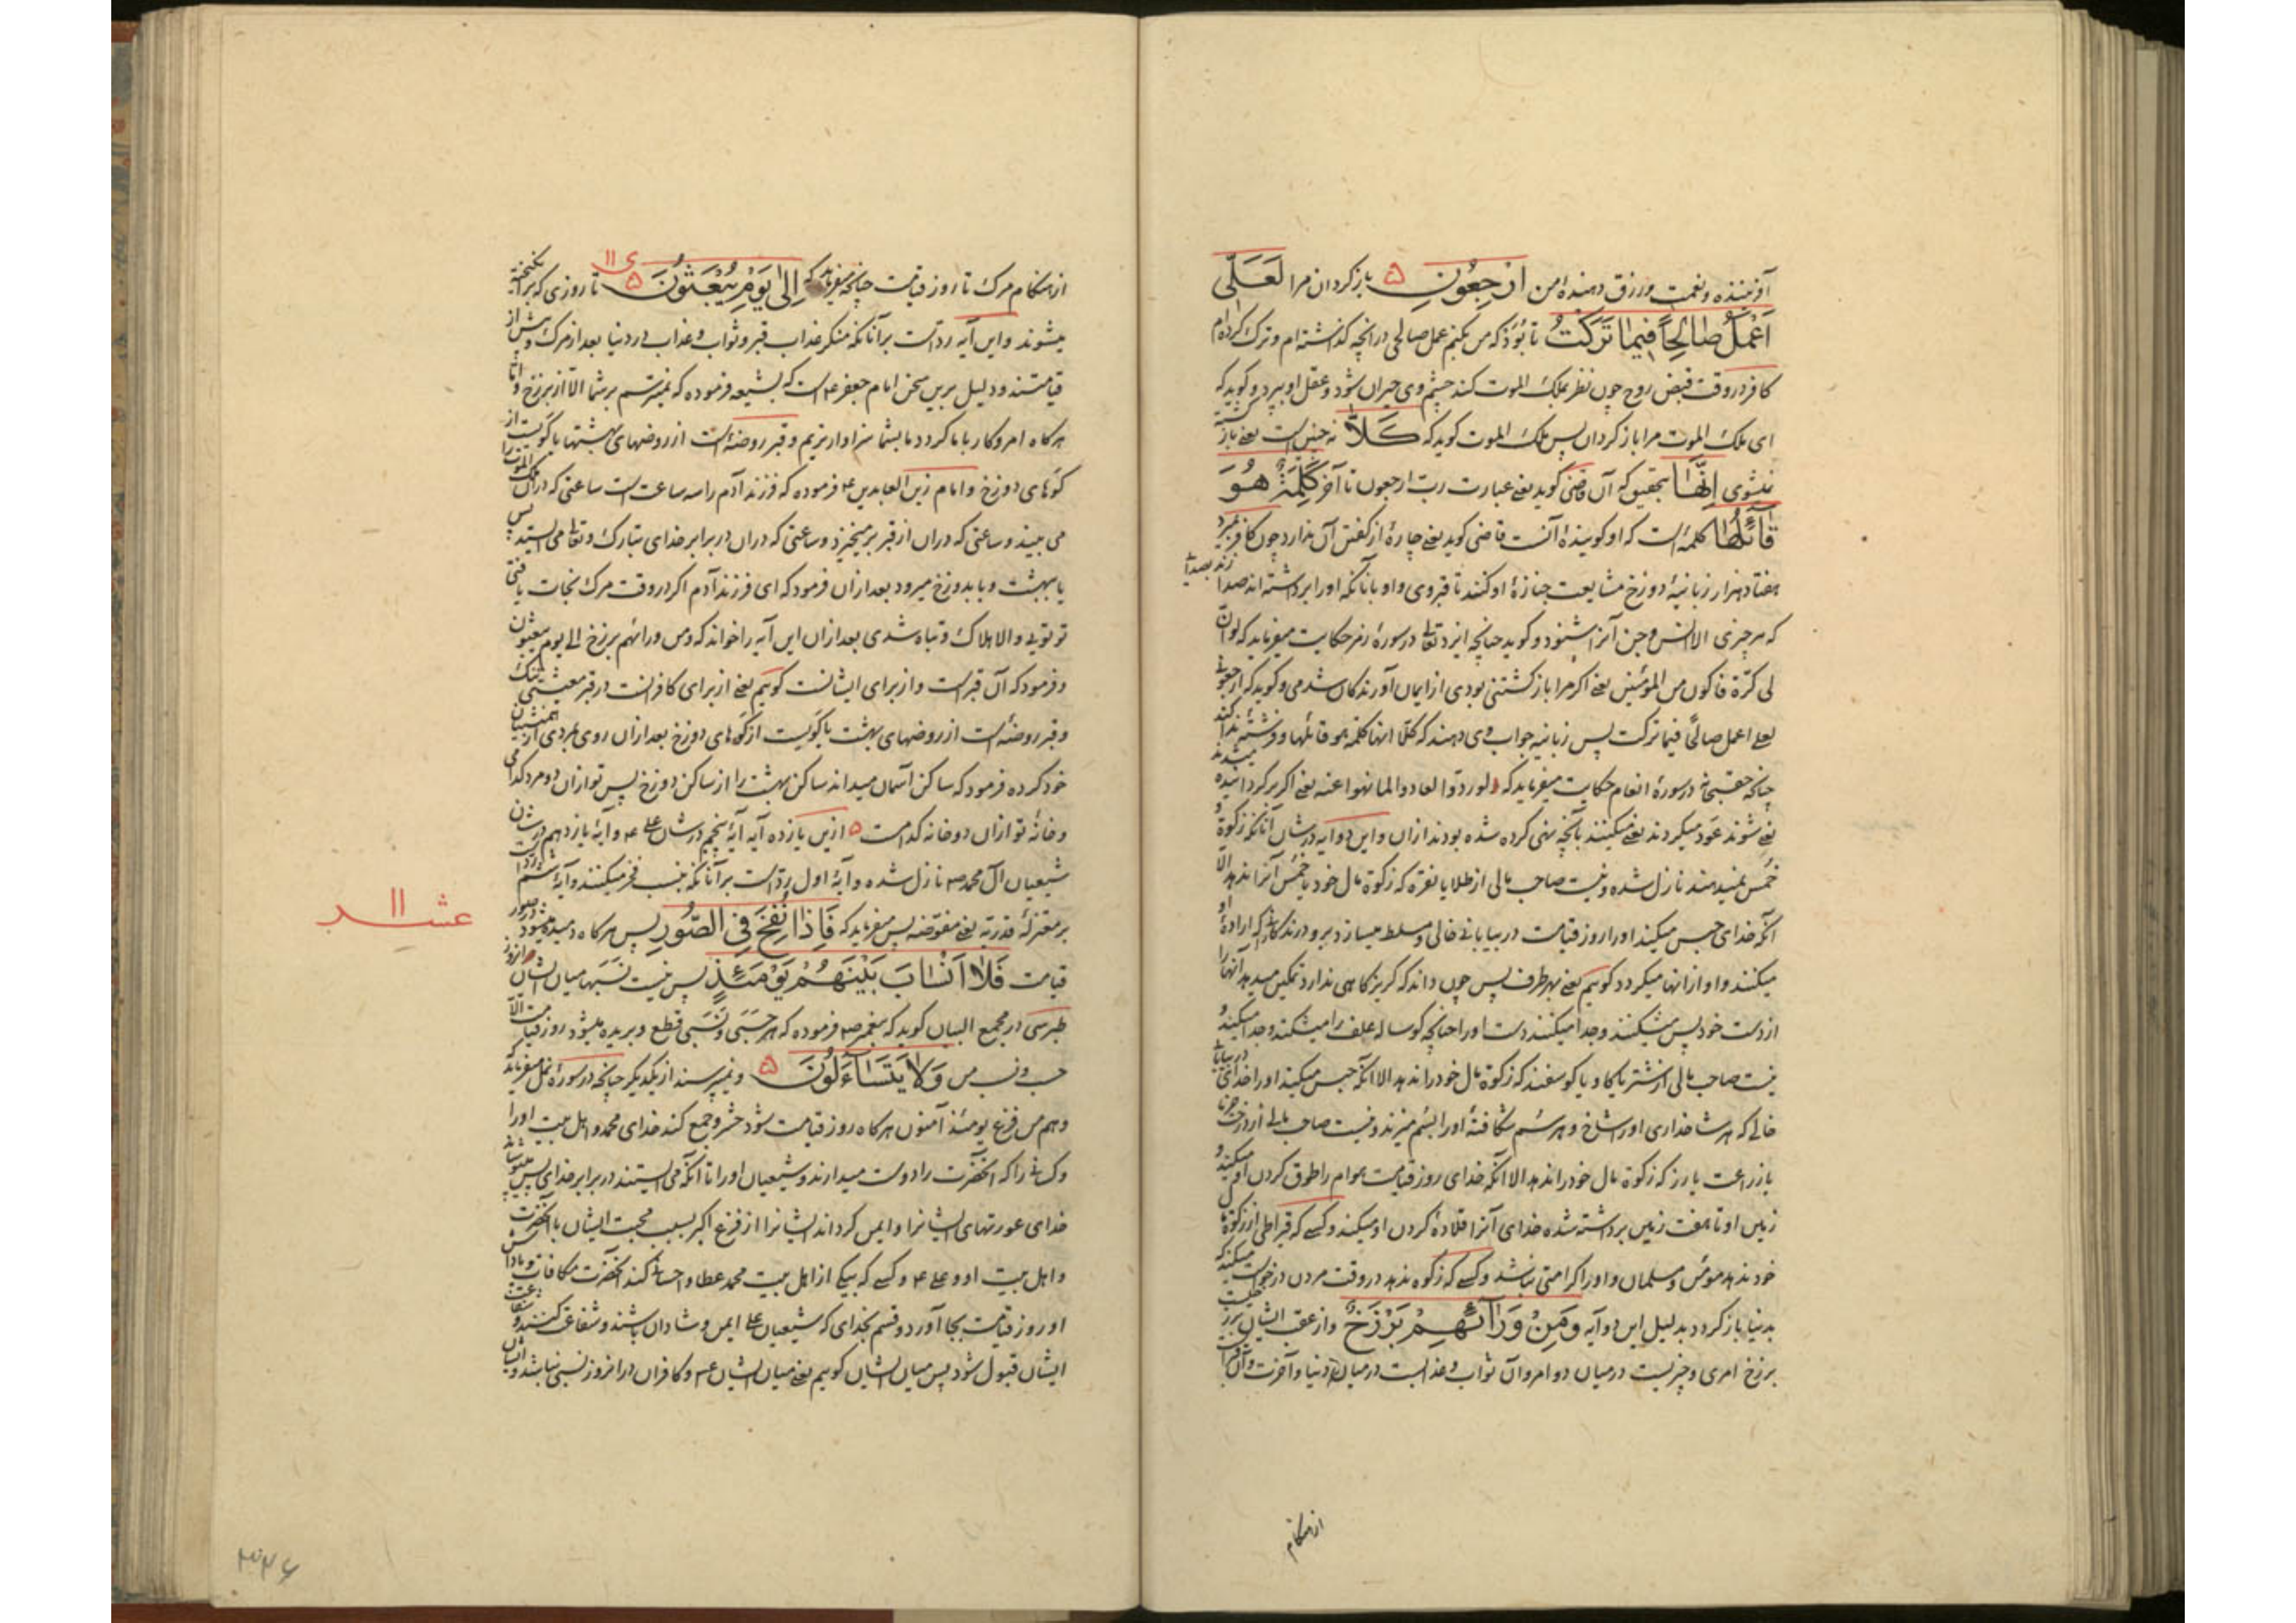 آفریننده و نعمت و رزق دهندهٔ من ارْجِعُونِ ۵ باز گردان مرا لَعَلّی
اَعْمَلُ صٰالِحاً فیمٰا تَرَکْتُ تا بُوَد که من بکنم عمل صالحی در آنچه گذشته‌ام و ترک کرده‌ام
کافر در وقت قبض روح چون نظر بملک الموت کند چشم وی حیران شود و عقل او بپرد و گوید که
ای ملک الموت مرا باز گردان پس ملک الموت گوید که کَلّٰا نه چنین است یعنے باز گشته
نمیشوی اِنَّهٰا بتحقیق که آن قاضی گوید یعنے عبارت ربّ ارجعون تا آخر کَلِمَةٌ هُوَ
قٰائِلُهٰا کلمه است که او گویندهٔ آنست قاضی گوید یعنے چارهٔ از گفتن آن ندارد چون کافر بمیرد
هفتاد هزار زبانیهٔ دوزخ مشایعت جنازهٔ او کنند تا قبر وی و او بآنانکه او را برداشته‌اند صدا زند بصدای
که هر چیزی الا انس و جن آنرا شنود و گوید چنانچه ایزد تعالی در سورهٔ زمر حکایت میفرماید که لو انّ
لی کرّة فاکون من المؤمنین یعنے اگر مرا باز گشتنی بودی از ایمان آورندگان شدمی و گوید که ارجعونے
لعلے اعمل صالحًا فیما ترکت پس زبانیه جواب وی دهند که کلّا انها کلمة هو قائلها و فرشتهٔ ندا کند
چنانچه حقتعالی در سورهٔ انعام حکایت میفرماید که و لو ردّوا لعادوا لما نهوا عنه یعنے اگر برگردانیده
یعنے شوند عَود میگردند یعنے میکنند بآنچه نهی کرده شده بودند از آن و این دو آیه در شان آنانکه زکوة و
خمس نمیدهند نازل شده و نیست صاحب مالی از طلا یا نقره که زکوة مال خود یا خمس آنرا ندهد الا
آنکه خدای حبس میکند او را روز قیامت در بیابانے خالی و مسلط میسازد برو درندگانے که ارادهٔ او
میکنند و او از آنها میگردد گوییم یعنے بهر طرف پس چون داند که گریزگاهی ندارد تمکین میدهد آنها را
از دست خود پس میشکنند و جدا میکنند دست او را چنانچه گوساله علف را میشکند و جدا میکند و
نیست صاحب مالی از شتر یا گاو یا گوسفند که زکوة مال خود را ندهد الا آنکه حبس میکند او را خدای در بیابانے
خالے که هر شاخداری او را شاخ و هر سُم شکافتهٔ او را بسُم میزند و نیست صاحب مالے از درخت خرما
یا زراعت یا رز که زکوة مال خود را ندهد الا آنکه خدای روز قیامت هوام را طوق گردن او میکند و
زمین او تا هفت زمین برداشته شده خدای آنرا قلادهٔ گردن او میکند و کسے که قیراطی از زکوة
خود ندهد مؤمن و مسلمان و او را کرامتی نباشد و کسے که زکوه ندهد در وقت مردن درخواست میکند که
بدنیا باز گردد بدلیل این دو آیه وَ مِنْ وَرٰائِهِمْ بَرْزَخٌ و از عقب ایشان
برزخ امری و چیزیست در میان دو امر و آن ثواب و عذابست در میان دنیا و آخرت و آن
از هنگام
از هنگام مرک تا روز قیامت چنانچه میفرماید که اِلیٰ یَوْمِ یُبْعَثُونَ ۵ تا روزی که برانگیخته
میشوند و این آیه ردّ است بر آنانکه منکر عذاب قبر و ثواب و عذاب در دنیا بعد از مرک و پیش از
قیامتند و دلیل برین سخن امام جعفر ع است که بشیعه فرموده که نمیترسم بر شما الّا از برزخ و امّا
هرگاه امر و کار با ما گردد ما بشما سزاوارتریم و قبر روضه است از روضهای بهشتها یا گویست از
گوهای دوزخ و امام زین العابدین ع فرموده که فرزند آدم را سه ساعت است ساعتی که در آن ملک الموت را
می بیند و ساعتی که در آن از قبر برمیخیزد و ساعتی که در آن در برابر خدای تبارک و تعالی می ایستد پس
یا ببهشت و یا بدوزخ میرود بعد از آن فرمود که ای فرزند آدم اگر در وقت مرک نجات یافتی
تو تویی و الا هلاک و تباه شدی بعد از آن این آیه را خواند که و من ورائهم برزخ الے یوم یبعثون
و فرمود که آن قبر است و از برای ایشانست گوییم یعنے از برای کافرانست در قبر معیشتی تنک
و قبر روضهٔ است از روضهای بهشت یا گویست از گوهای دوزخ بعد از آن روی بمردی از همنشینان
خود کرده فرمود که ساکن آسمان میداند ساکن بهشت را از ساکن دوزخ پس تو از آن دو مرد کدامی
و خانهٔ تو از آن دو خانه کدامست ۵ ازین یازده آیه آیهٔ پنجم در شان علے ع و آیهٔ یازدهم در شان
شیعیان آل محمد ص نازل شده و آیهٔ اول ردّ است بر آنانکه بنسب فخر میکنند و آیهٔ ششم
بر معتزلهٔ قدریه یعنے مفوّضه پس میفرماید که فَاِذٰا نُفِخَ فِی الصُّورِ پس هرگاه دمیده شود در صور
قیامت فَلٰا اَنْسٰابَ بَیْنَهُمْ یَوْمَئِذٍ پس نیست نسبها میان ایشان در آن روز
طبرسی در مجمع البیان گوید که پیغمبر ص فرموده که هر حَسَبی و نَسَبی قطع و بریده میشود روز قیامت الّا
حسب و نسب من وَ لٰا یَتَسٰاءَلُونَ ۵ و نمیپرسند از یکدیگر چنانچه در سورهٔ نمل میفرماید که
و هم من فزع یومئذ آمنون هرگاه روز قیامت شود حشر و جمع کند خدای محمد و اهل بیت او را
و کسانے را که آنحضرت را دوست میدارند و شیعیان او را تا آنکه می ایستند در برابر خدای پس میپوشاند
خدای عورتهای ایشانرا و ایمن گرداند ایشانرا از فزع اکبر بسبب محبت ایشان با آنحضرت
و اهل بیت او و علے ع و کسے که بیکے از اهل بیت محمد عطا و احسانے کند آنحضرت مکافات و پاداش
او روز قیامت بجا آورد و قسم بخدای که شیعیان علے ایمن و شادان باشند و شفاعت کنند و شفاعت
ایشان قبول شود پس میان ایشان گوییم یعنے میان ایشان ع و کافران در آنروز نسبی نباشد و ایشان
عشر ۱۱
۳۴۶